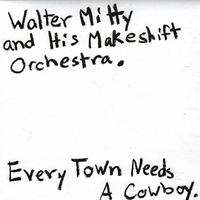 Walter Mitty
and His Makeshift
Orchestra.
Every Town Needs
A Cowboy.